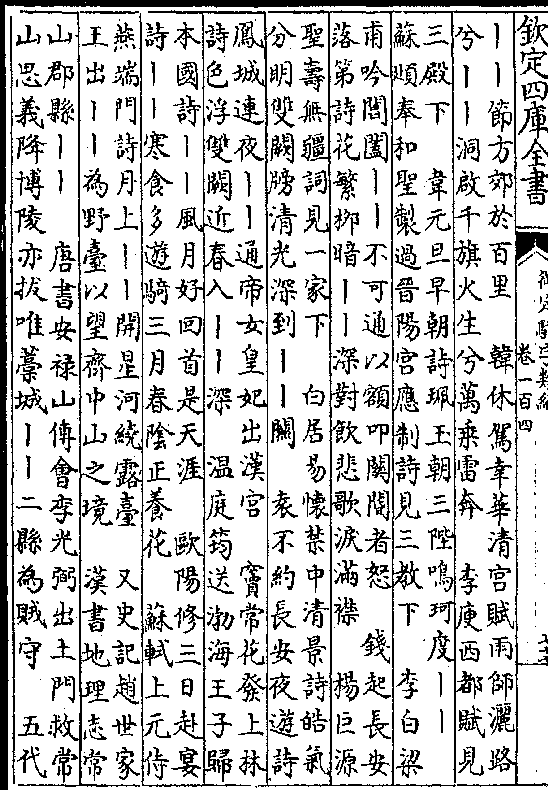 欽定四庫全書
御定駢字類編
卷一百四
｜｜節方郊於百里　韓休駕幸華清宮賦雨師灑路
兮｜｜洞啟千旗火生兮萬乘雷奔　李庾西都賦見
三殿下　韋元旦早朝詩珮玉朝三陛鳴珂度｜｜
蘇頲奉和聖製過晉陽宮應制詩見三教下　李白梁
甫吟閶闔｜｜不可通以額叩關閽者怒　錢起長安
落第詩花繁柳暗｜｜深對飲悲歌淚滿襟　楊巨源
聖壽無疆詞見一家下　白居易懷禁中清景詩皓氣
分明雙闕牓清光深到｜｜關　袁不約長安夜遊詩
鳳城連夜｜｜通帝女皇妃出漢宮　竇常花發上林
詩色浮雙闕近春入｜｜深　溫庭筠送渤海王子歸
本國詩｜｜風月好回首是天涯　歐陽修三日赴宴
詩｜｜寒食多遊騎三月春陰正養花　蘇軾上元侍
燕端門詩月上｜｜開星河繞露臺　又史記趙世家
王出｜｜為野臺以望齊中山之境　漢書地理志常
山郡縣｜｜　唐書安祿山傳會李光弼出土門救常
山思義降博陵亦拔唯藁城｜｜二縣為賊守　五代